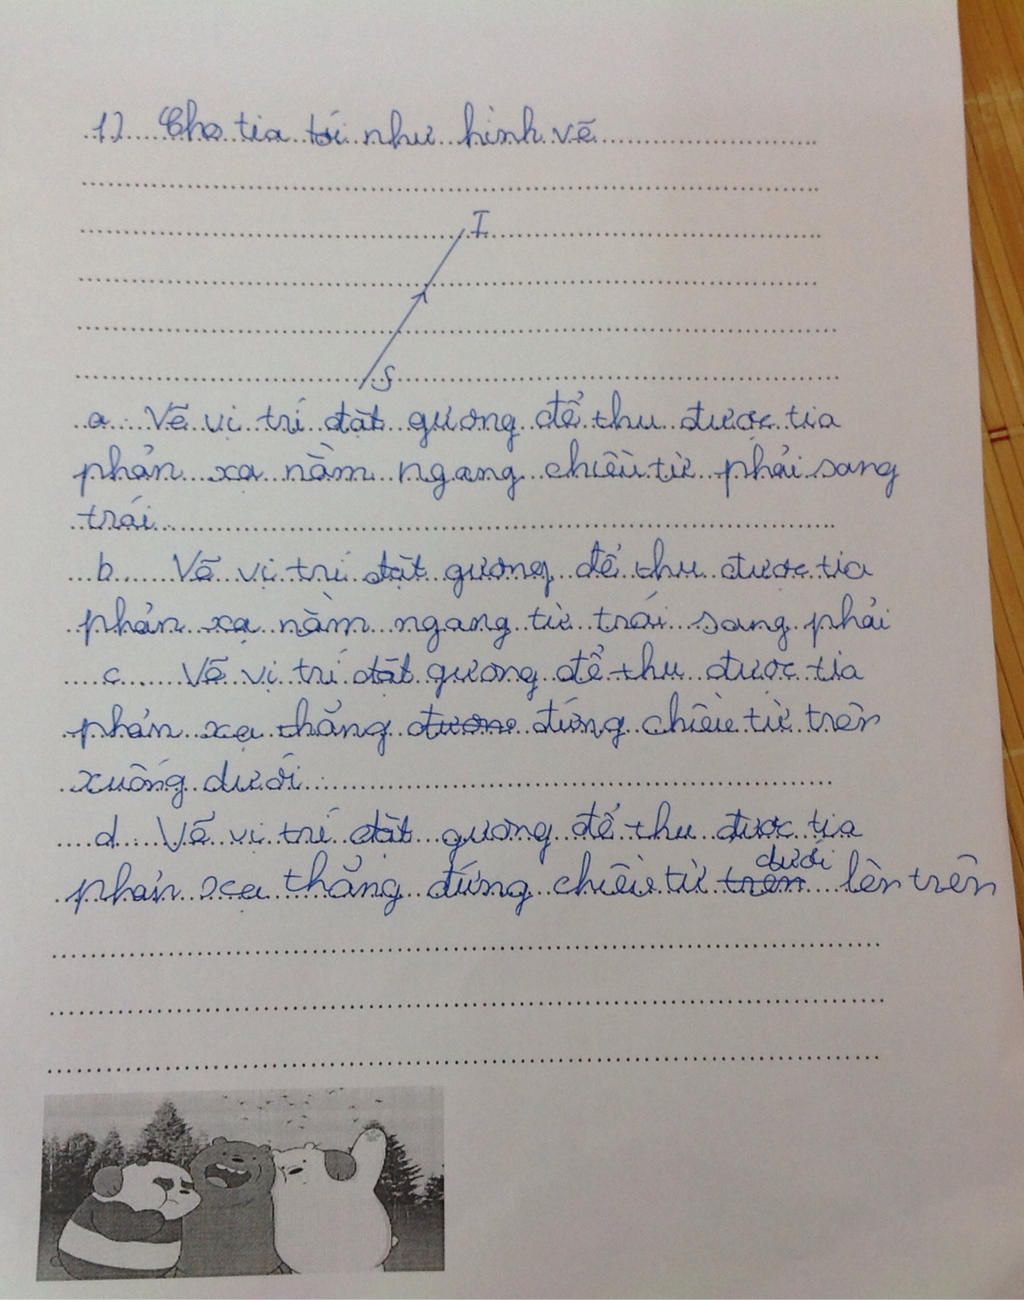 1) Cho tia tới như hình vẽ
I
S
a. Vẽ vị trí đặt gương để thu được tia
phản xạ nằm ngang chiều từ phải sang
trái
b. Vẽ vị trí đặt gương để thu được tia
phản xạ nằm ngang từ trái sang phải
c. Vẽ vị trí đặt gương để thu được tia
phản xạ thẳng đương đứng chiều từ trên
xuống dưới
d. Vẽ vị trí đặt gương để thu được tia
dưới
phản xạ thẳng đứng chiều từ trên lên trên